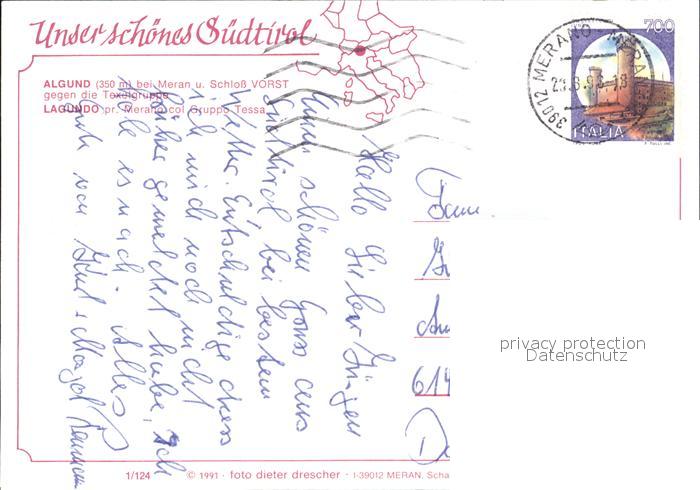 Unser schönes Südtirol
ALGUND (350 m) bei Meran u. Schloß VORST
gegen die Texelgruppe
LAGUNDO pr. Merano col Gruppo Tessa
700
39012 MERANO MERAN
ITALIA
Hallo Lieber Jürgen
einen schönen Gruss aus
Südtirol bei bestem
Wetter. Entschuldige dass
ich mich noch nicht
früher gemeldet habe, Ich
hole es nach. Alles
Gute von
Fam
614
privacy protection
Datenschutz
1/124 © 1991 · foto dieter drescher · I-39012 MERAN, Scha